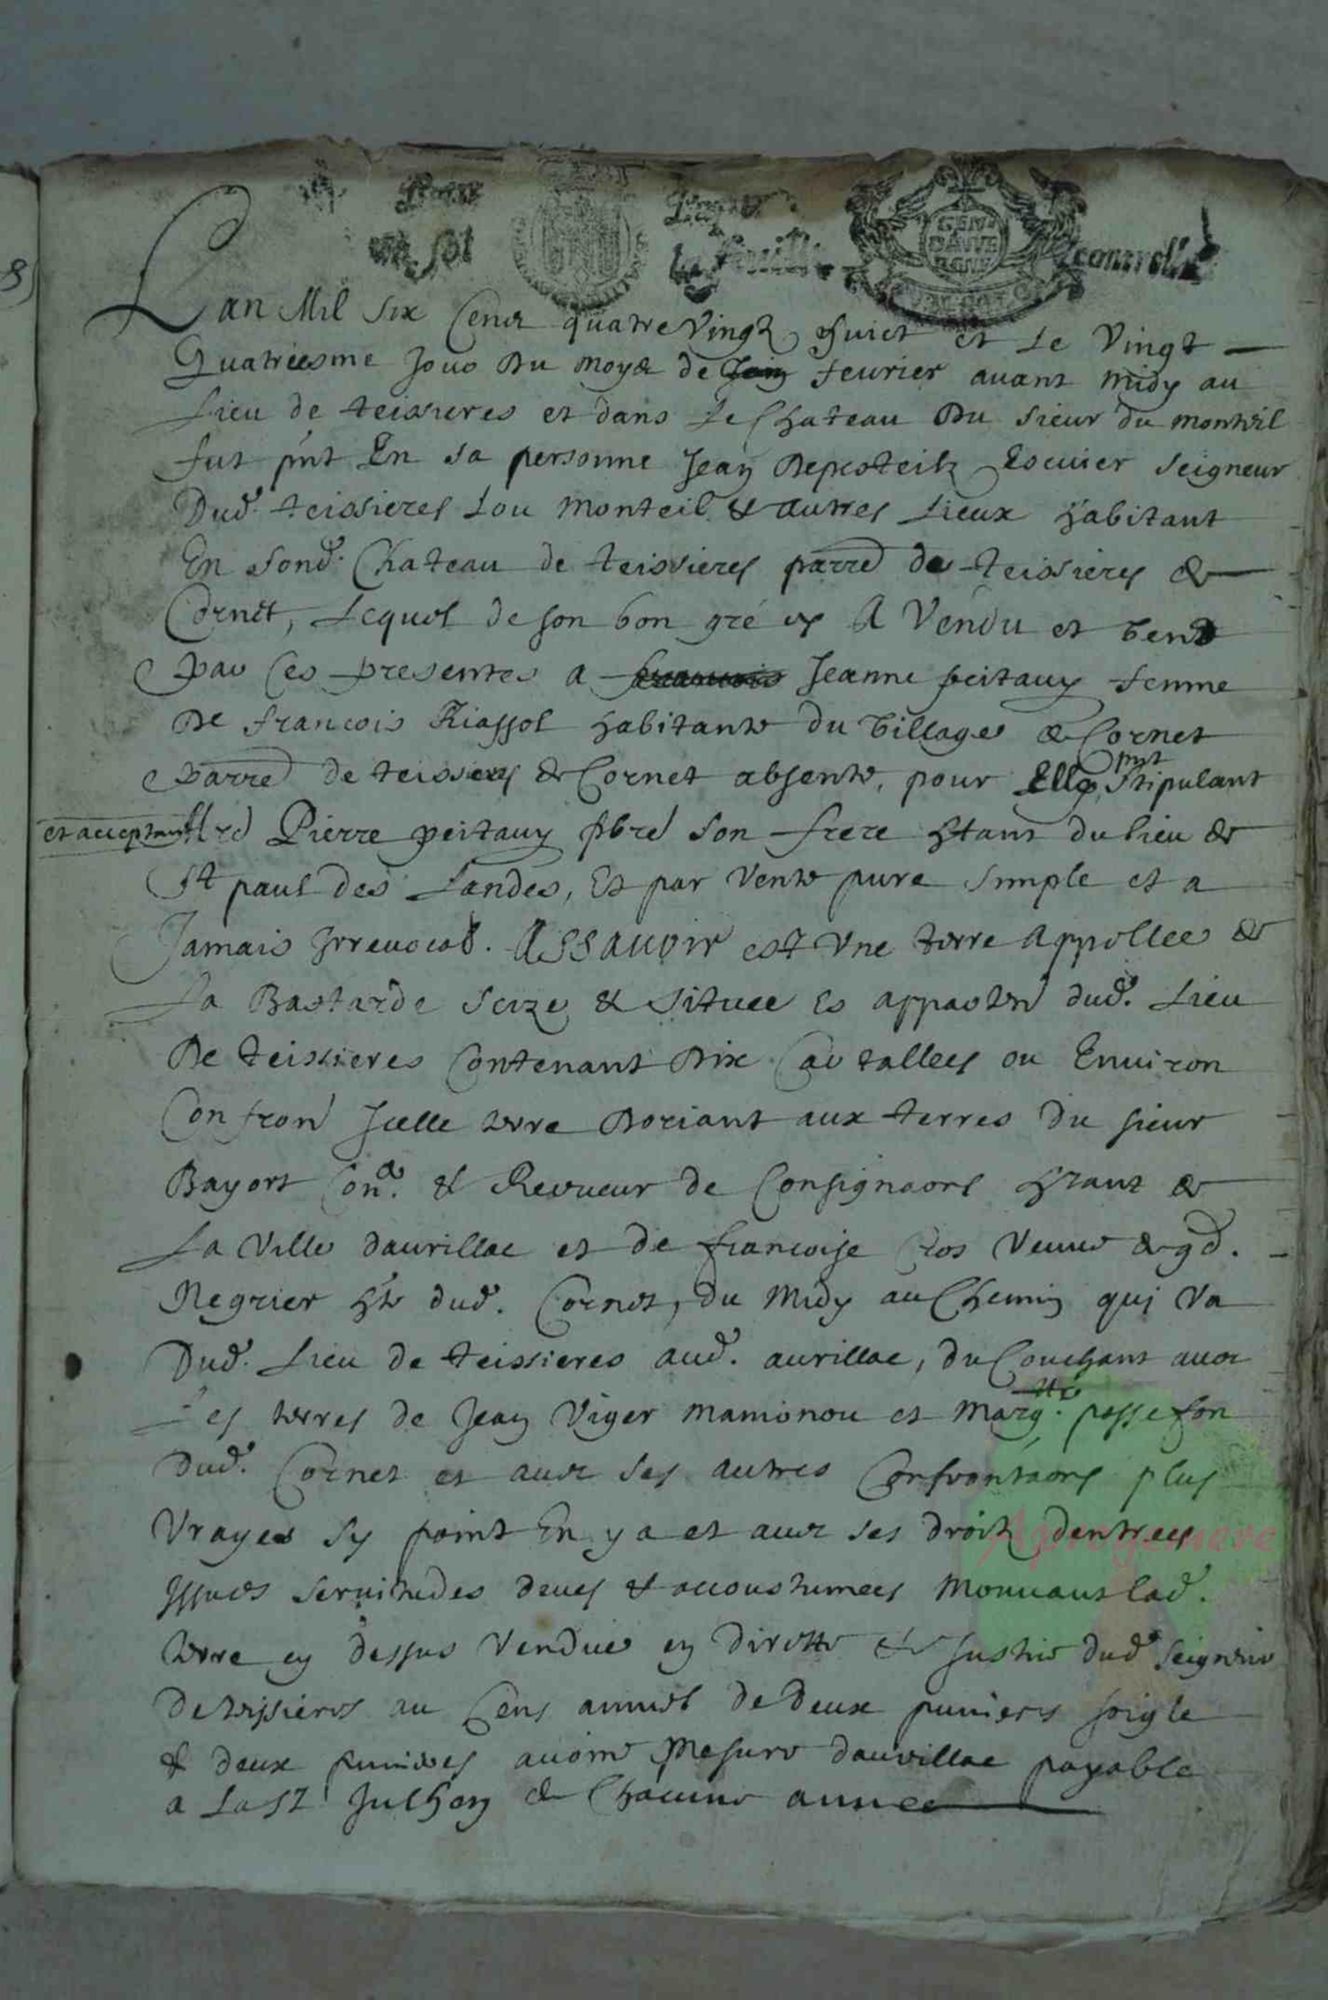 un sol
la feuille
GEN. DAUVERGNE
controlle
8
Lan Mil six Cent quatre Vingt huict et le Vingt
Quatriesme Jour Du moys de Juin feurier auant midy au
Lieu de teissieres et dans le Chateau Du sieur du monteil
fut pnt En sa personne Jean Escuier seigneur
Dud. teissieres Lou monteil & autres Lieux habitant
En sond. Chateau de teissieres parre de teissieres &
Cornet, Lequel de son bon gré A Vendu et Vend
par Ces presentes a francois Jeanne peitauy femme
De francois Riassol habitante du Village de Cornet
parre de teissieres & Cornet absente, pour Elle pnt stipulant
et acceptant Mre Pierre peitauy pbre son frere htant du lieu de
St paul des Landes, Et par Vente pure simple et a
Jamais Irreuocab. Assauoir est Vne terre Appellee de
La Bastarde seize & située Es appartn dud. Lieu
De teissieres Contenant Dix Cartallees ou Enuiron
Confron Icelle terre Doriant aux terres Du sieur
Bayort Con.er & Receueur de Consignaons htant de
La Ville daurillac et de francoise Cros Veuue de gd.
Negrier hte dud. Cornet, du Midy au Chemin qui Va
Dud. Lieu de teissieres aud. aurillac, du Couchant auec
Les terres de Jean Viger mamonou et Marg.tte passefon
Dud. Cornet et auec ses autres Confrontaons plus
Vrayes sy point En y a et auec ses droitz dentrees
Issues seruitudes deues & accoustumees Mouuant lad.
terre cy dessus Vendue en directe & Justice dud. seigneur
De teissieres au Cens annuel de Deux punieres seigle
& deux punieres auoine Mesure daurillac payable
a La St Julhen de Chacune annee